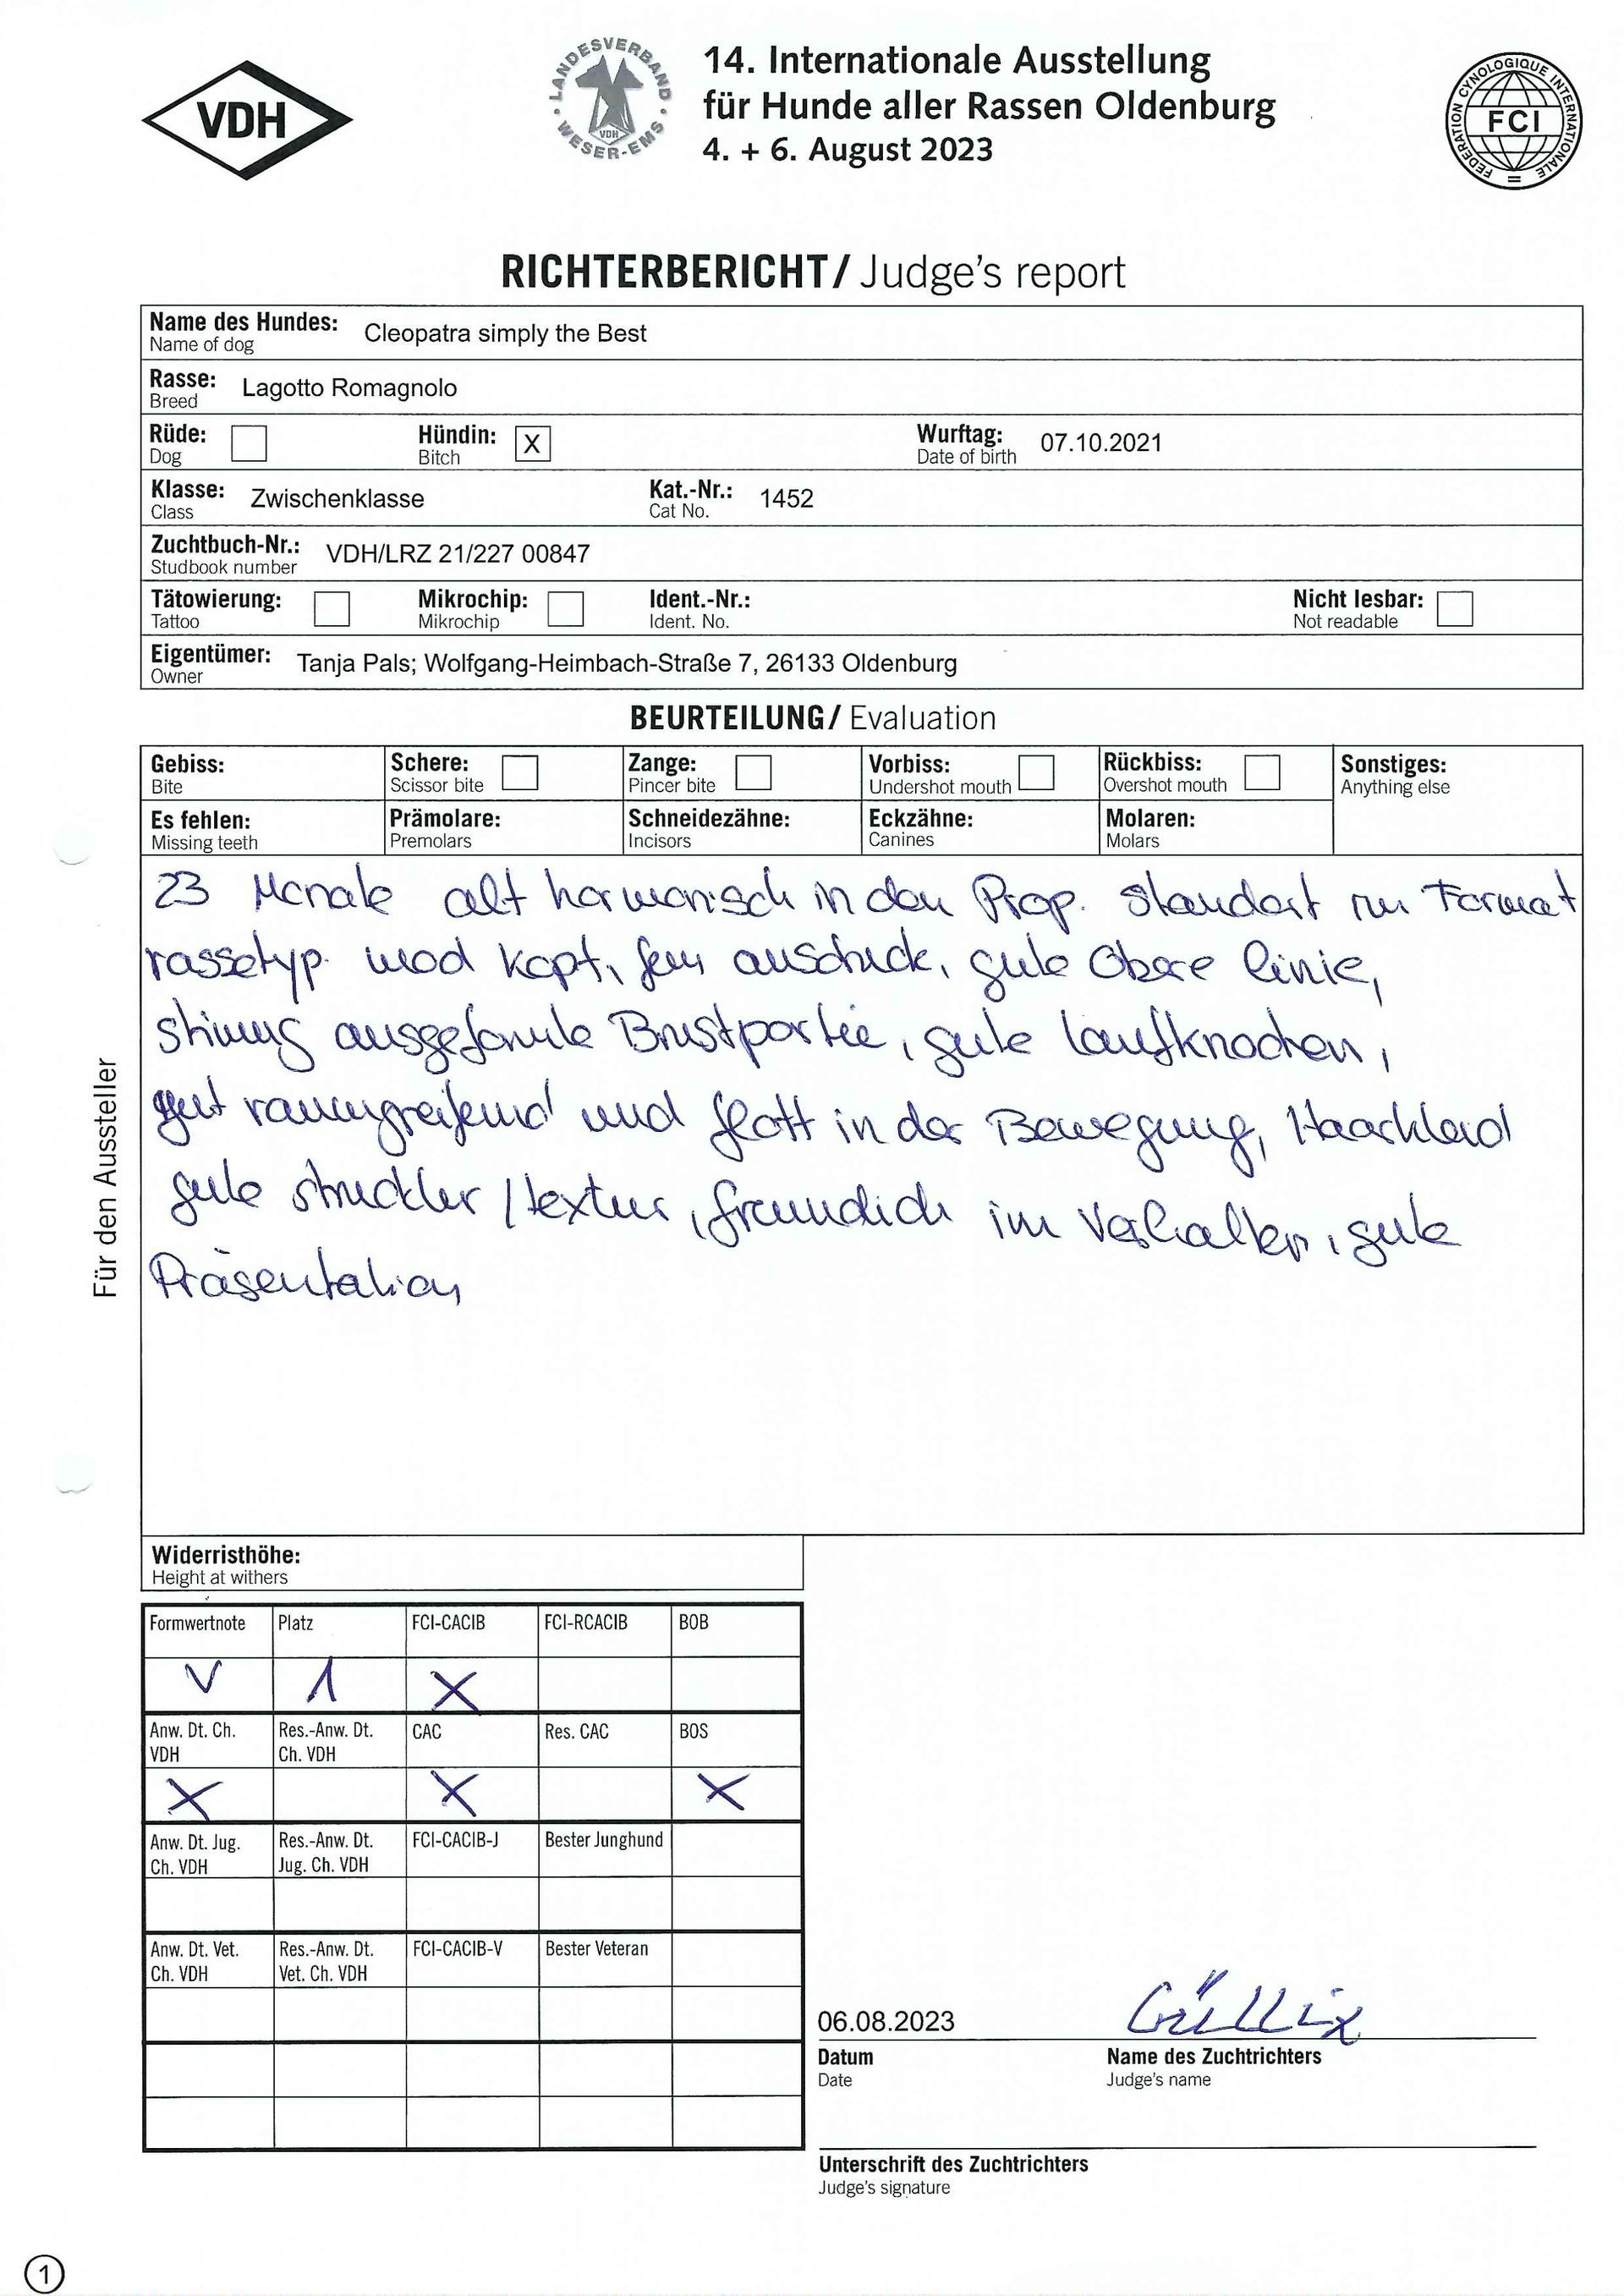 VDH
LANDESVERBAND WESER-EMS
VDH
14. Internationale Ausstellung
für Hunde aller Rassen Oldenburg
4. + 6. August 2023
FEDERATION CYNOLOGIQUE INTERNATIONALE
FCI
RICHTERBERICHT/ Judge's report
Name des Hundes: Cleopatra simply the Best
Name of dog
Rasse: Lagotto Romagnolo
Breed
Rüde: Hündin: X Wurftag: 07.10.2021
Dog Bitch Date of birth
Klasse: Zwischenklasse Kat.-Nr.: 1452
Class Cat No.
Zuchtbuch-Nr.: VDH/LRZ 21/227 00847
Studbook number
Tätowierung: Mikrochip: Ident.-Nr.: Nicht lesbar:
Tattoo Mikrochip Ident. No. Not readable
Eigentümer: Tanja Pals; Wolfgang-Heimbach-Straße 7, 26133 Oldenburg
Owner
BEURTEILUNG/ Evaluation
Gebiss: Schere: Zange: Vorbiss: Rückbiss: Sonstiges:
Bite Scissor bite Pincer bite Undershot mouth Overshot mouth Anything else
Es fehlen: Prämolare: Schneidezähne: Eckzähne: Molaren:
Missing teeth Premolars Incisors Canines Molars
23 Monate alt harmonisch in den Prop. standart im Format
rassetyp. Kopf, gute Obere Linie,
stimmig ausgeformte Brustportie, gute Laufknochen,
gut raumgreifend und flott in der Bewegung, Haarkleid
gute struktur / textur, freundlich im Verhalten, gute
Präsentation
Für den Aussteller
Widerristhöhe:
Height at withers
Formwertnote Platz FCI-CACIB FCI-RCACIB BOB
V 1 X
Anw. Dt. Ch. Res.-Anw. Dt. CAC Res. CAC BOS
VDH Ch. VDH
X X X
Anw. Dt. Jug. Res.-Anw. Dt. FCI-CACIB-J Bester Junghund
Ch. VDH Jug. Ch. VDH
Anw. Dt. Vet. Res.-Anw. Dt. FCI-CACIB-V Bester Veteran
Ch. VDH Vet. Ch. VDH
06.08.2023
Datum Name des Zuchtrichters
Date Judge's name
Unterschrift des Zuchtrichters
Judge's signature
1